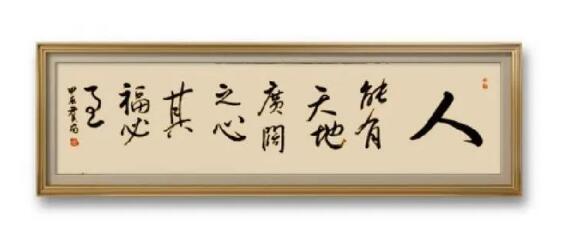 人
能有
天地
廣闊
之心
其
福必
至
甲辰